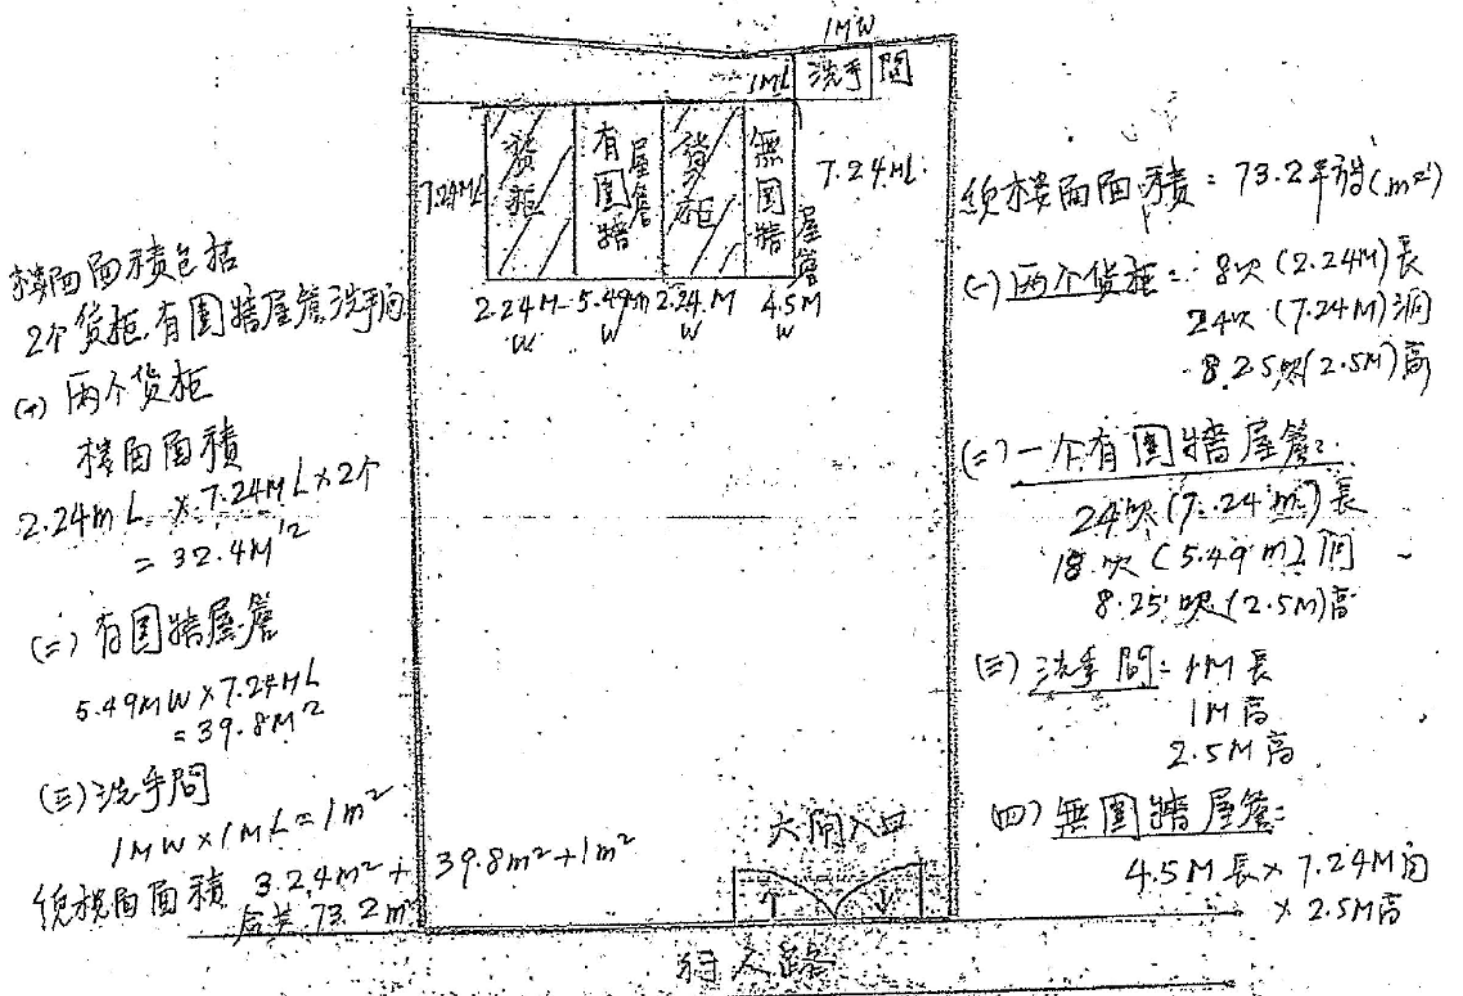 1MW
1ML 洗手間
貨柜
有圍牆屋簷
貨柜
無圍牆屋簷
7.24ML
7.24ML.
2.24M W
5.49m W
2.24M W
4.5M W
楼面面積包括
2个货柜.有圍牆屋簷洗手间
(一) 两个货柜
楼面面積
2.24m L x 7.24M L x 2个
= 32.4M²
(二) 有囯牆屋簷
5.49MW x 7.24ML
= 39.8M²
(三) 洗手間
1MW x 1ML = 1m²
總楼面面積 32.4m² + 39.8m² + 1m²
合共 73.2m²
總楼面面積 : 73.2平方(m²)
(一) 两个货柜 : 8呎 (2.24M) 長
24呎 (7.24M) 濶
8.25呎 (2.5M) 高
(二) 一个有圍牆屋簷:
24呎 (7.24m) 長
18呎 (5.49m)
8.25呎 (2.5M) 高
(三) 洗手間: 1M 長
1M 高
2.5M 高
(四) 無圍牆屋簷:
4.5M 長 x 7.24M
x 2.5M高
大閘入口
行人路